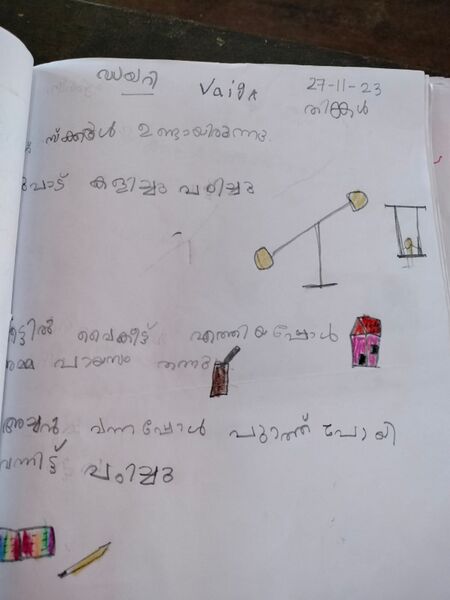 ഡയറി Vaiga 27-11-23
തിങ്കൾ
സ്ക്കൂൾ ഉണ്ടായിരുന്നു.
കളിച്ചു പഠിച്ചു
വൈകീട്ട് എത്തിയപ്പോൾ
പായസം തന്നു
അച്ഛൻ വന്നപ്പോൾ പുറത്ത് പോയി
വന്നിട്ട് പഠിച്ചു